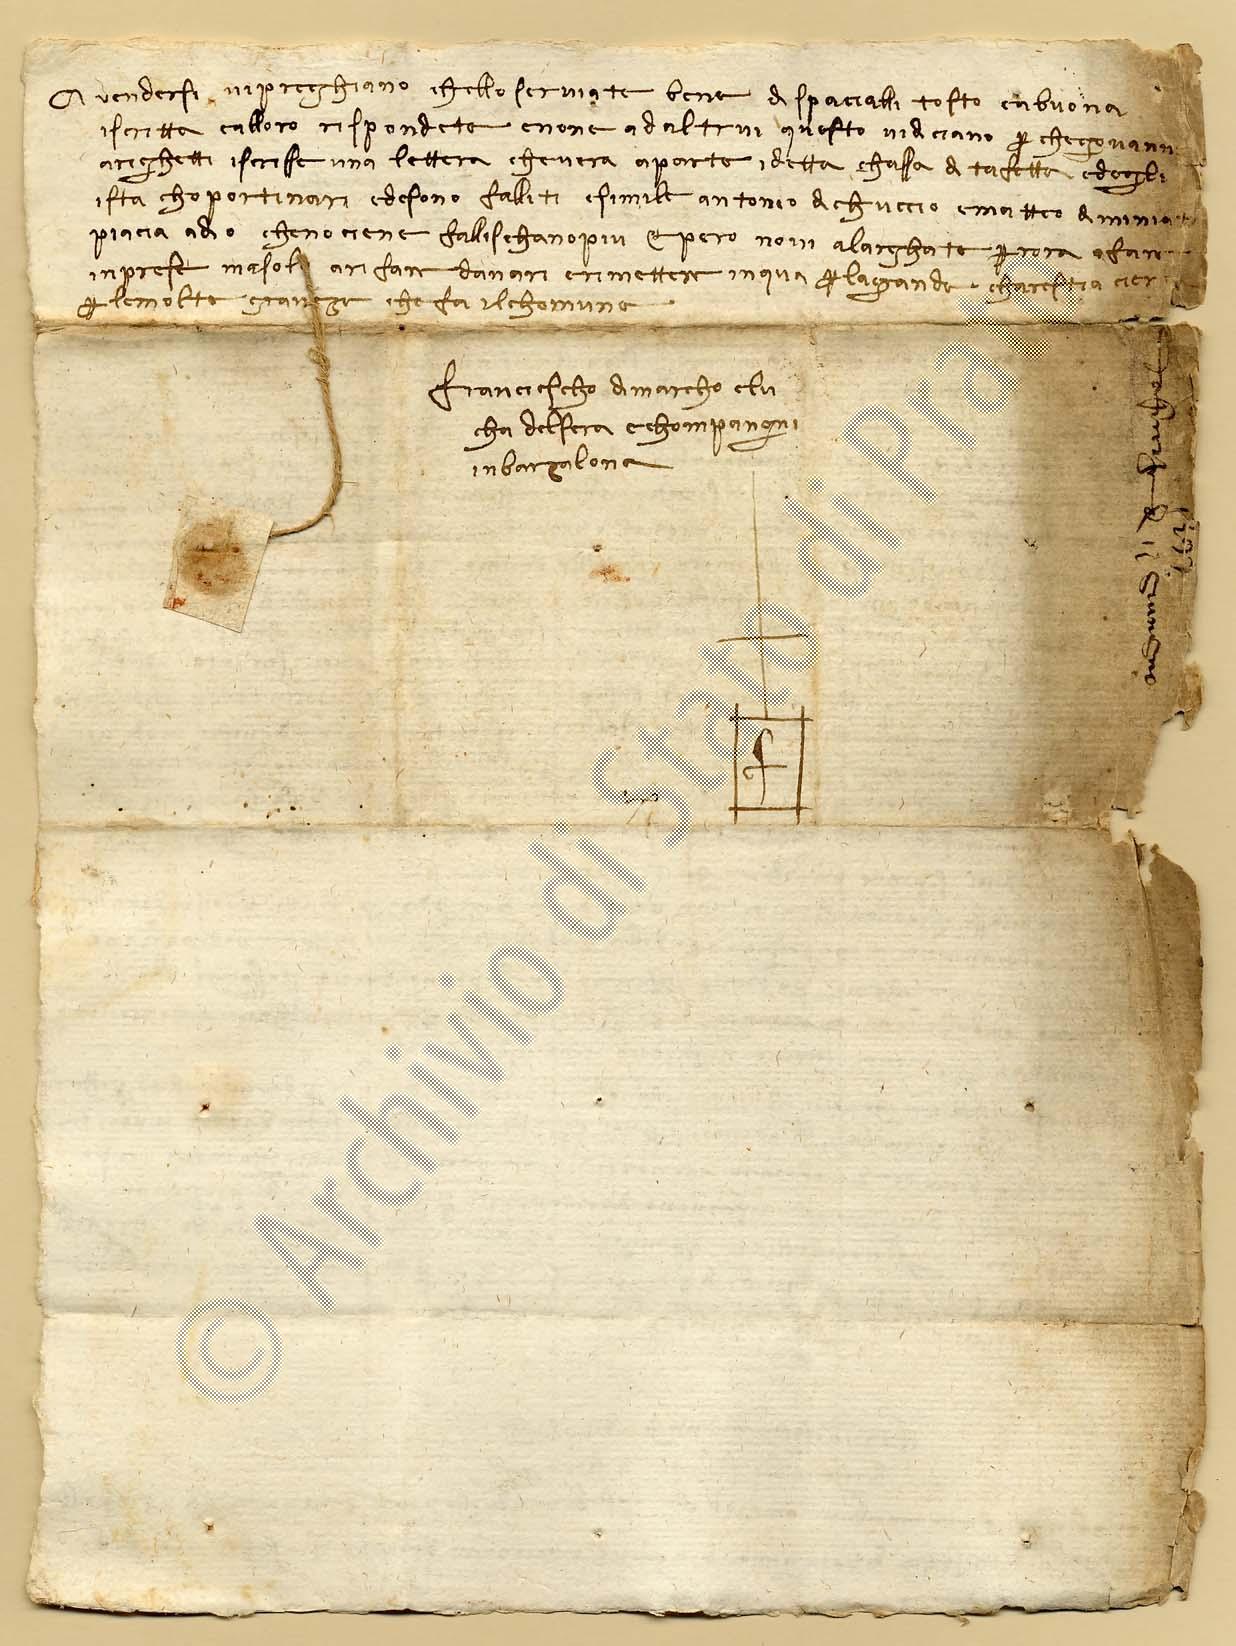 A vendersi vi preghiano chello serviate bene di spaciallj tosto e a buona
iscritta e alloro rispondete e none ad altrui questo vi diciano p che govannj
arighetti iscrisse una lettera che v era a parte i detta chassa di tafetta ed egli
ista cho portinari ed e sono falliti e simile antonio di chuccio e matteo di miniat
piacia a dio che no ciene fallischano piu & pero non vi alarghate p rora a fare
inprese ma solo a rifare danari e rimettere in qua p la grande charestia
p le molte graveze che fa il chomune
franciescho di marcho e lu
cha del sera e chompangni
in barzalona
f
© Archivio di Stato di Prato